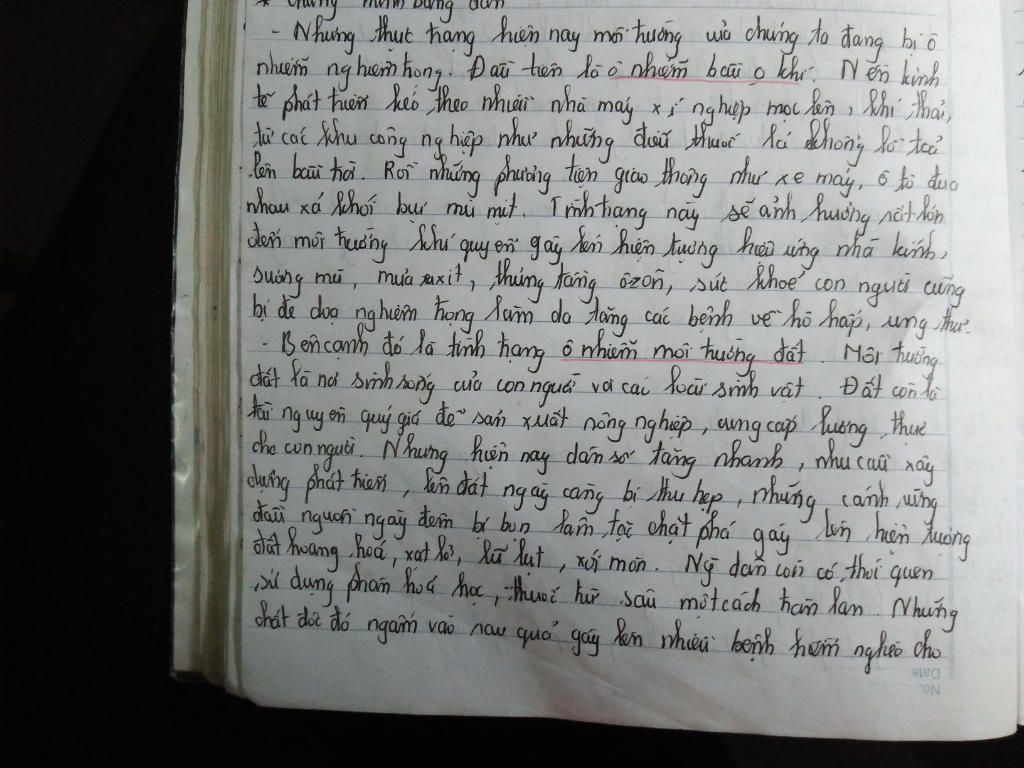 * chứng minh bằng dẫn
- Nhưng thực trạng hiện nay môi trường của chúng ta đang bị ô
nhiễm nghiêm trọng. Đầu tiên là ô nhiễm bầu o khí. Nền kinh
tế phát triển kéo theo nhiều nhà máy xí nghiệp mọc lên, khí thải,
từ các khu công nghiệp như những điếu thuốc lá khổng lồ toả
lên bầu trời. Rồi những phương tiện giao thông như xe máy, ô tô đua
nhau xả khói bụi mù mịt. Tình trạng này sẽ ảnh hưởng rất lớn
đến môi trường khí quyển gây lên hiện tượng hiệu ứng nhà kính,
sương mù, mưa axit, thủng tầng ôzôn, sức khoẻ con người cũng
bị đe doạ nghiêm trọng làm da tăng các bệnh về hô hấp, ung thư.
- Bên cạnh đó là tình trạng ô nhiễm môi trường đất. Môi trường
đất là nơi sinh sống của con người và các loài sinh vật. Đất còn là
tài nguyên quý giá để sản xuất nông nghiệp, cung cấp lương thực
cho con người. Nhưng hiện nay dân số tăng nhanh, nhu cầu xây
dựng phát triển, lên đất ngày càng bị thu hẹp, những cánh rừng
đầu nguồn ngày đêm bị bọn lâm tặc chặt phá gây lên hiện tượng
đất hoang hoá, xạt lở, lũ lụt, xói mòn. Ng` dân còn có thói quen
sử dụng phân hoá học, thuốc trừ sâu một cách tràn lan. Những
chất độc đó ngấm vào rau quả gây lên nhiều bệnh hiểm nghèo cho
No.
Date